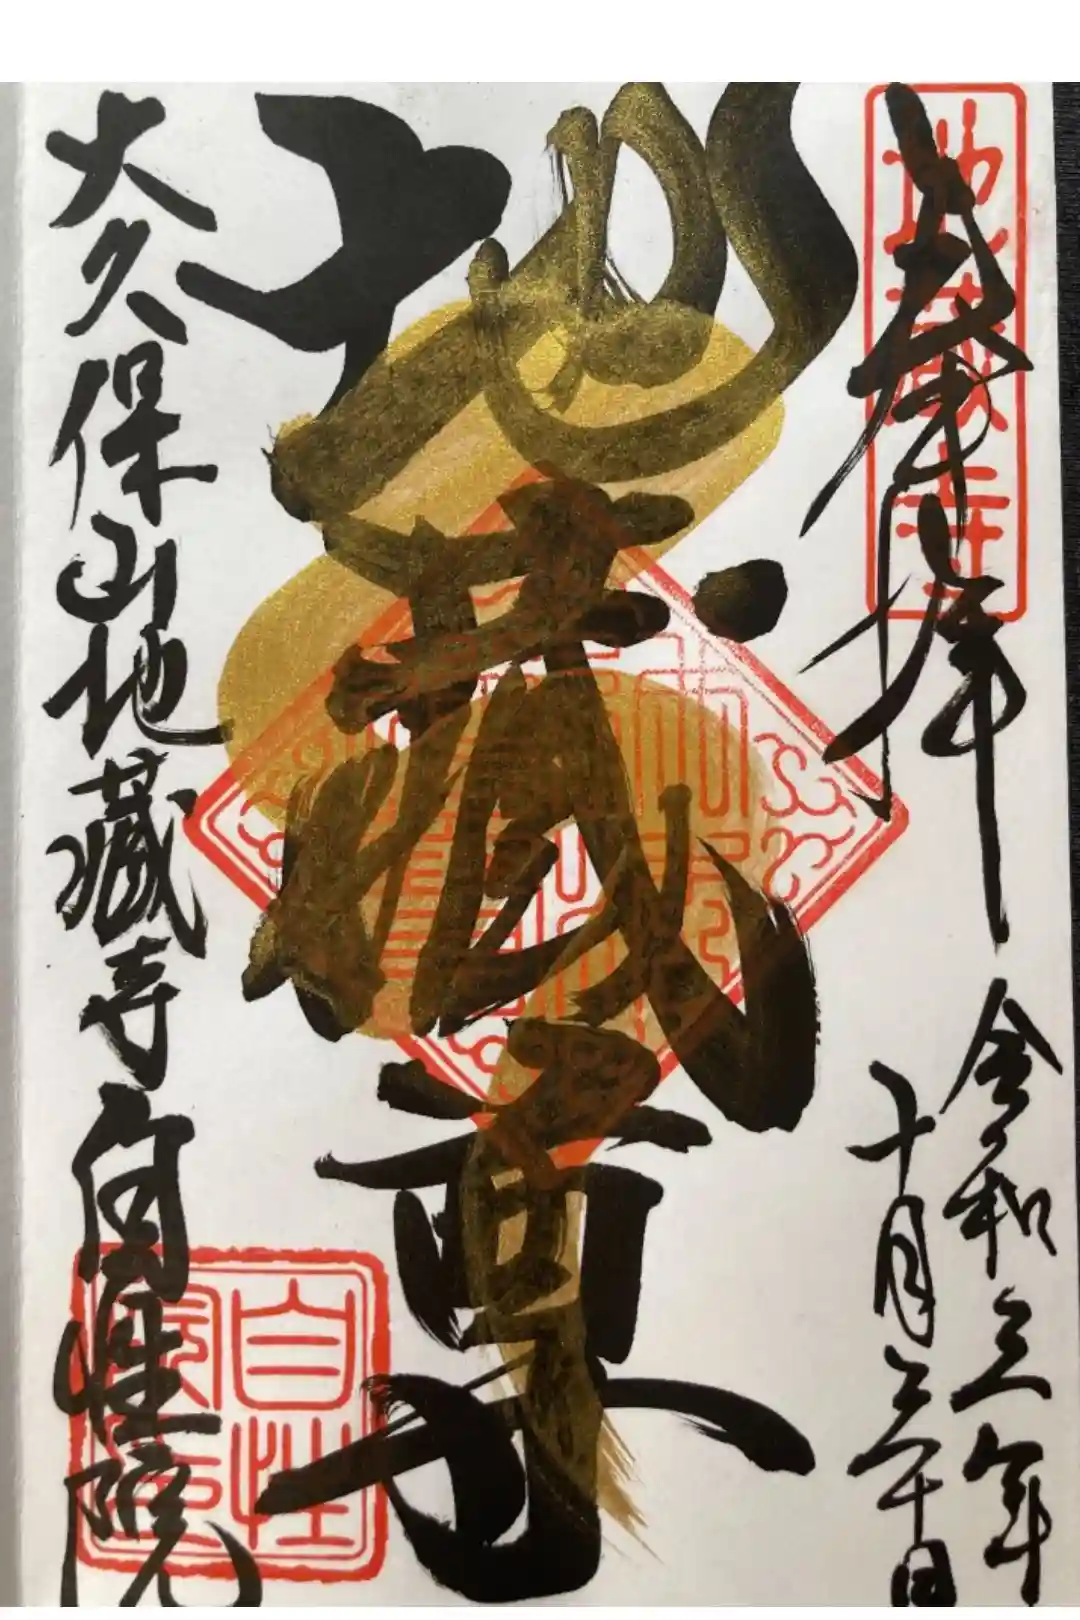 奉拝
令和三年
十月三十日
地蔵寺
地蔵尊
大久保山地蔵寺自性院
自性院